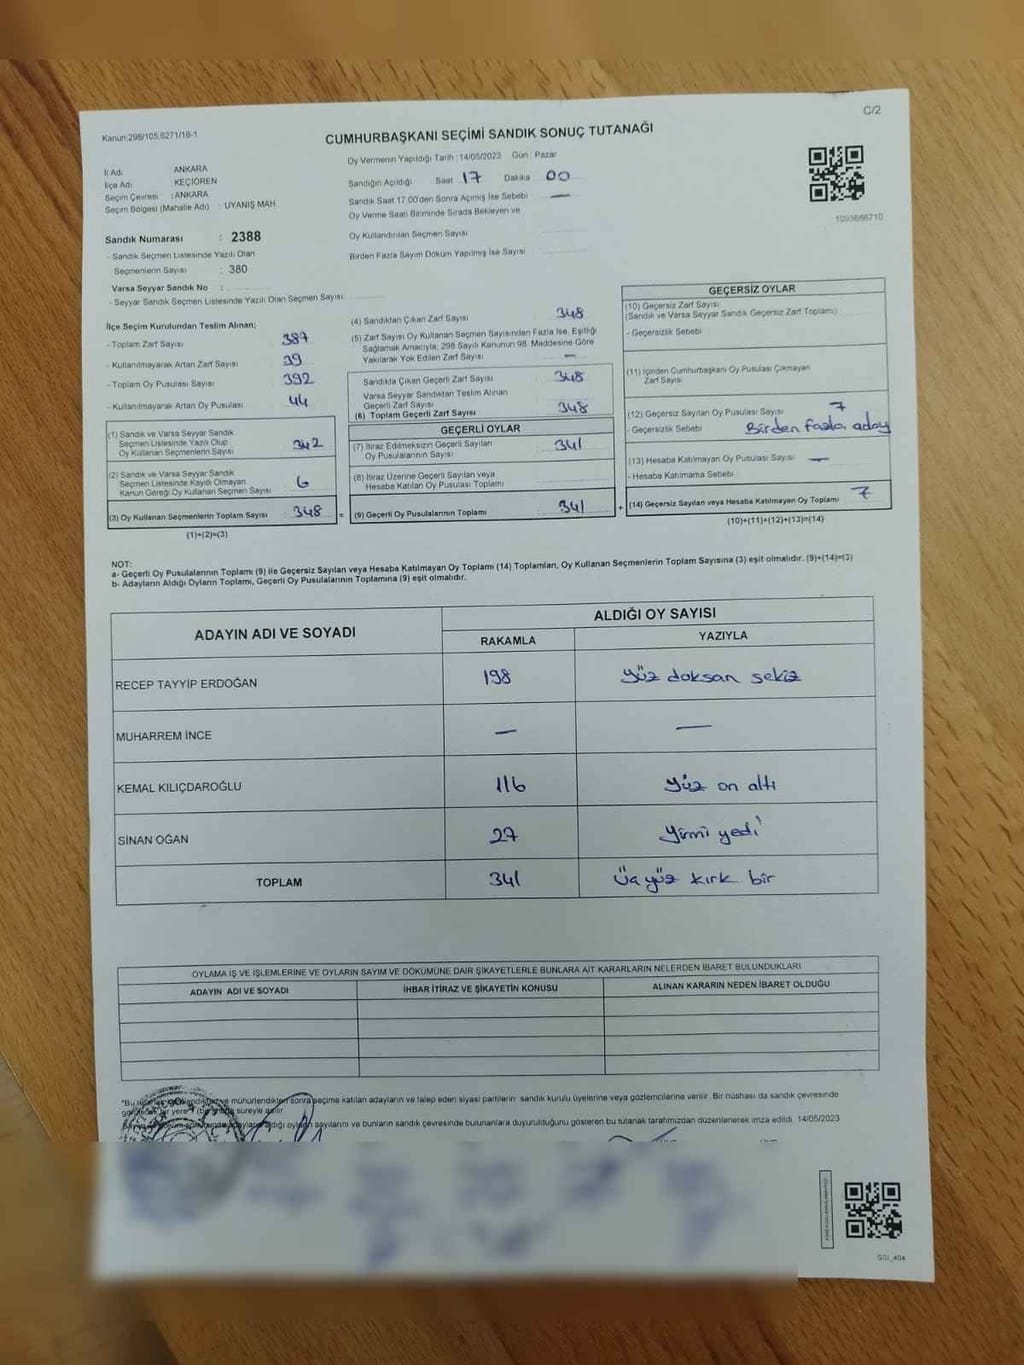 C/2
Kanun:298/105,6271/18-1
CUMHURBAŞKANI SEÇİMİ SANDIK SONUÇ TUTANAĞI
İl Adı : ANKARA
İlçe Adı : KEÇİÖREN
Seçim Çevresi : ANKARA
Seçim Bölgesi (Mahalle Adı) : UYANIŞ MAH.
Oy Vermenin Yapıldığı Tarih :14/05/2023 Gün : Pazar
Sandığın Açıldığı Saat 17 Dakika 00
Sandık Saat 17.00'den Sonra Açılmış İse Sebebi —
Oy Verme Saati Bitiminde Sırada Bekleyen ve
Oy Kullandırılan Seçmen Sayısı
Birden Fazla Sayım Döküm Yapılmış İse Sayısı
1093666710
Sandık Numarası : 2388
- Sandık Seçmen Listesinde Yazılı Olan
Seçmenlerin Sayısı : 380
Varsa Seyyar Sandık No :
- Seyyar Sandık Seçmen Listesinde Yazılı Olan Seçmen Sayısı:
İlçe Seçim Kurulundan Teslim Alınan;
- Toplam Zarf Sayısı 387
- Kullanılmayarak Artan Zarf Sayısı 39
- Toplam Oy Pusulası Sayısı 392
- Kullanılmayarak Artan Oy Pusulası 44
(1) Sandık ve Varsa Seyyar Sandık
Seçmen Listesinde Yazılı Olup
Oy Kullanan Seçmenlerin Sayısı 342
(2) Sandık ve Varsa Seyyar Sandık
Seçmen Listesinde Kayıtlı Olmayan
Kanun Gereği Oy Kullanan Seçmen Sayısı 6
(3) Oy Kullanan Seçmenlerin Toplam Sayısı 348 =
(1)+(2)=(3)
(4) Sandıktan Çıkan Zarf Sayısı 348
(5) Zarf Sayısı Oy Kullanan Seçmen Sayısından Fazla İse, Eşitliği
Sağlamak Amacıyla; 298 Sayılı Kanunun 98. Maddesine Göre
Yakılarak Yok Edilen Zarf Sayısı —
Sandıkta Çıkan Geçerli Zarf Sayısı 348
Varsa Seyyar Sandıktan Teslim Alınan
Geçerli Zarf Sayısı
(6) Toplam Geçerli Zarf Sayısı 348
GEÇERLİ OYLAR
(7) İtiraz Edilmeksizin Geçerli Sayılan
Oy Pusulalarının Sayısı 341
(8) İtiraz Üzerine Geçerli Sayılan veya
Hesaba Katılan Oy Pusulası Toplamı
(9) Geçerli Oy Pusulalarının Toplamı 341 +
GEÇERSİZ OYLAR
(10) Geçersiz Zarf Sayısı
(Sandık ve Varsa Seyyar Sandık Geçersiz Zarf Toplamı)
- Geçersizlik Sebebi
(11) İçinden Cumhurbaşkanı Oy Pusulası Çıkmayan
Zarf Sayısı
(12) Geçersiz Sayılan Oy Pusulası Sayısı 7
- Geçersizlik Sebebi Birden fazla aday
(13) Hesaba Katılmayan Oy Pusulası Sayısı —
- Hesaba Katılmama Sebebi
(14) Geçersiz Sayılan veya Hesaba Katılmayan Oy Toplamı 7
(10)+(11)+(12)+(13)=(14)
NOT:
a- Geçerli Oy Pusulalarının Toplamı (9) ile Geçersiz Sayılan veya Hesaba Katılmayan Oy Toplamı (14) Toplamları, Oy Kullanan Seçmenlerin Toplam Sayısına (3) eşit olmalıdır. (9)+(14)=(3)
b- Adayların Aldığı Oyların Toplamı, Geçerli Oy Pusulalarının Toplamına (9) eşit olmalıdır.
ADAYIN ADI VE SOYADI
ALDIĞI OY SAYISI
RAKAMLA YAZIYLA
RECEP TAYYİP ERDOĞAN 198 yüz doksan sekiz
MUHARREM İNCE — —
KEMAL KILIÇDAROĞLU 116 yüz on altı
SİNAN OĞAN 27 yirmi yedi
TOPLAM 341 Üçyüz kırk bir
OYLAMA İŞ VE İŞLEMLERİNE VE OYLARIN SAYIM VE DÖKÜMÜNE DAİR ŞİKAYETLERLE BUNLARA AİT KARARLARIN NELERDEN İBARET BULUNDUKLARI
ADAYIN ADI VE SOYADI İHBAR İTİRAZ VE ŞİKAYETİN KONUSU ALINAN KARARIN NEDEN İBARET OLDUĞU
mühürlendikten sonra seçime katılan adayların ve talep eden siyasi partilerin sandık kurulu üyelerine veya gözlemcilerine verilir. Bir nüshası da sandık çevresinde
süreyle asılır.
oyların sayılarını ve bunların sandık çevresinde bulunanlara duyurulduğunu gösteren bu tutanak tarafımızdan düzenlenerek imza edildi. 14/05/2023
SSI_404